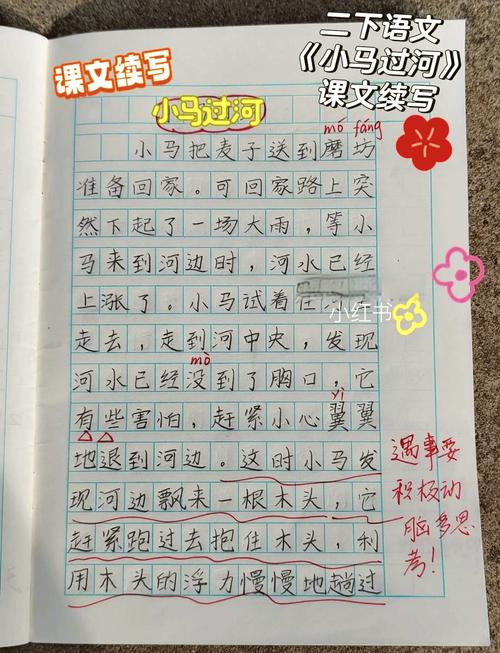 二下语文
《小马过河》
课文续写
课文续写
小马过河
mò fáng
小马把麦子送到磨坊
准备回家。可回家路上突
然下起了一场大雨,等小
马来到河边时,河水已经
上涨了。小马试着往
小红书
走去,走到河中央,发现
mò
河水已经没到了胸口,它
yì
有些害怕,赶紧小心翼翼
地退到河边。这时小马发
现河边飘来一根木头,它
赶紧跑过去抱住木头,利
用木头的浮力慢慢地趟过
遇事要
积极动
脑多思
考!